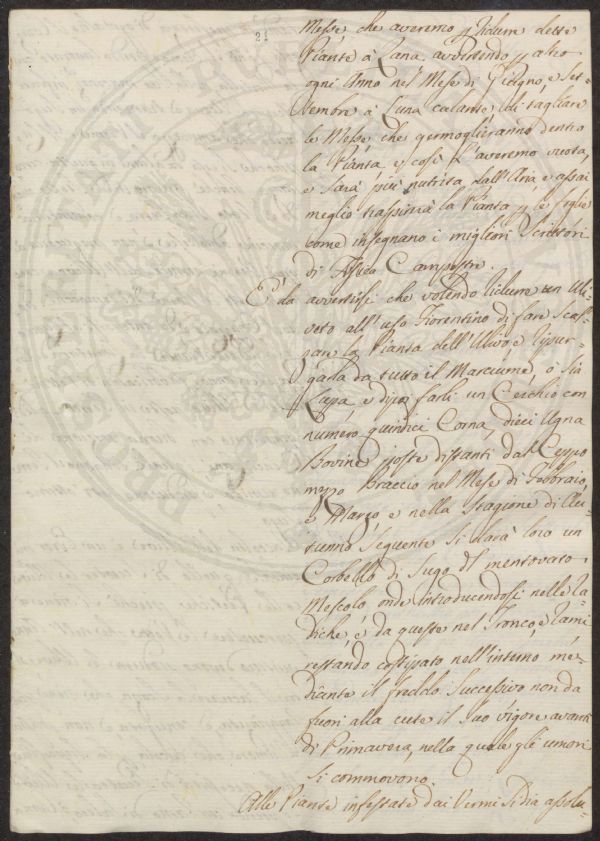 21
Messe, che averemo p ridure dette
Piante à Lana, avvertendo p altro
ogni Anno nel Mese di Giugno, e Set-
tembre à Luna calante, di tagliare
le Messe che germoglieranno dentro
la Pianta e così l'averemo vuota,
e sarà più nutrita dall'Aria, e assai
meglio traspirerà la Pianta p le figlie
come insegnano i migliori Scrittori
di Fisica Campestre.
E' da avvertirsi che volendo ridurre un Uli-
veto all'uso Fiorentino di fare Scal-
zare la Pianta dell'Ulivo, e ripur-
garla da tutto il Marciume, ò sia
Luppa e dipoi farli un Cerchio con
numero quindici Corna, dieci Ugna
Bovine poste distanti dal Ceppo
mezzo Braccio nel Mese di Febbraio,
e Marzo, e nella Stagione di Au-
tunno Seguente si darà loro un
Corbello di Sugo del mentovato
Mescolo onde introducendosi nelle Ra-
diche, e da queste nel Tronco, e Rami
restando costipato nell'interno me-
diante il freddo Successivo non da
fuori alla cute il suo vigore avanti
di Primavera, nella quale gli umori
si commovono.
Alle Piante infestate dai Vermi si dia assolu-